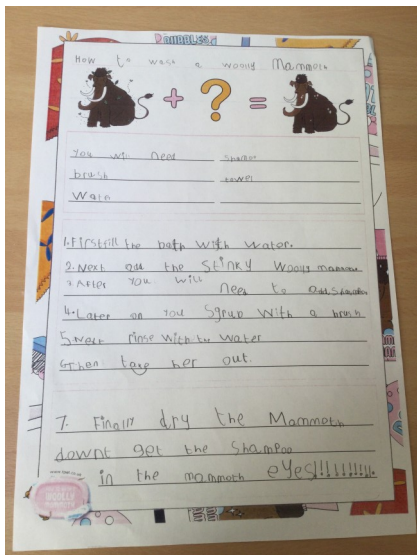 BUBBLES
How to wash a woolly Mammoth
+ ? =
You will need
shampoo
brush
towel
Water
1. First fill the bath with water.
2. Next add the stinky woolly mammoth
3. After you will
need to add shampoo
4. Later on you Sgrub with a brush
5. Next rinse with the water
6. Then take her out.
7. Finally dry the Mammoth
downt get the Shampoo
in the mammoth eyes!!!!!!!!!!
WOOLLY